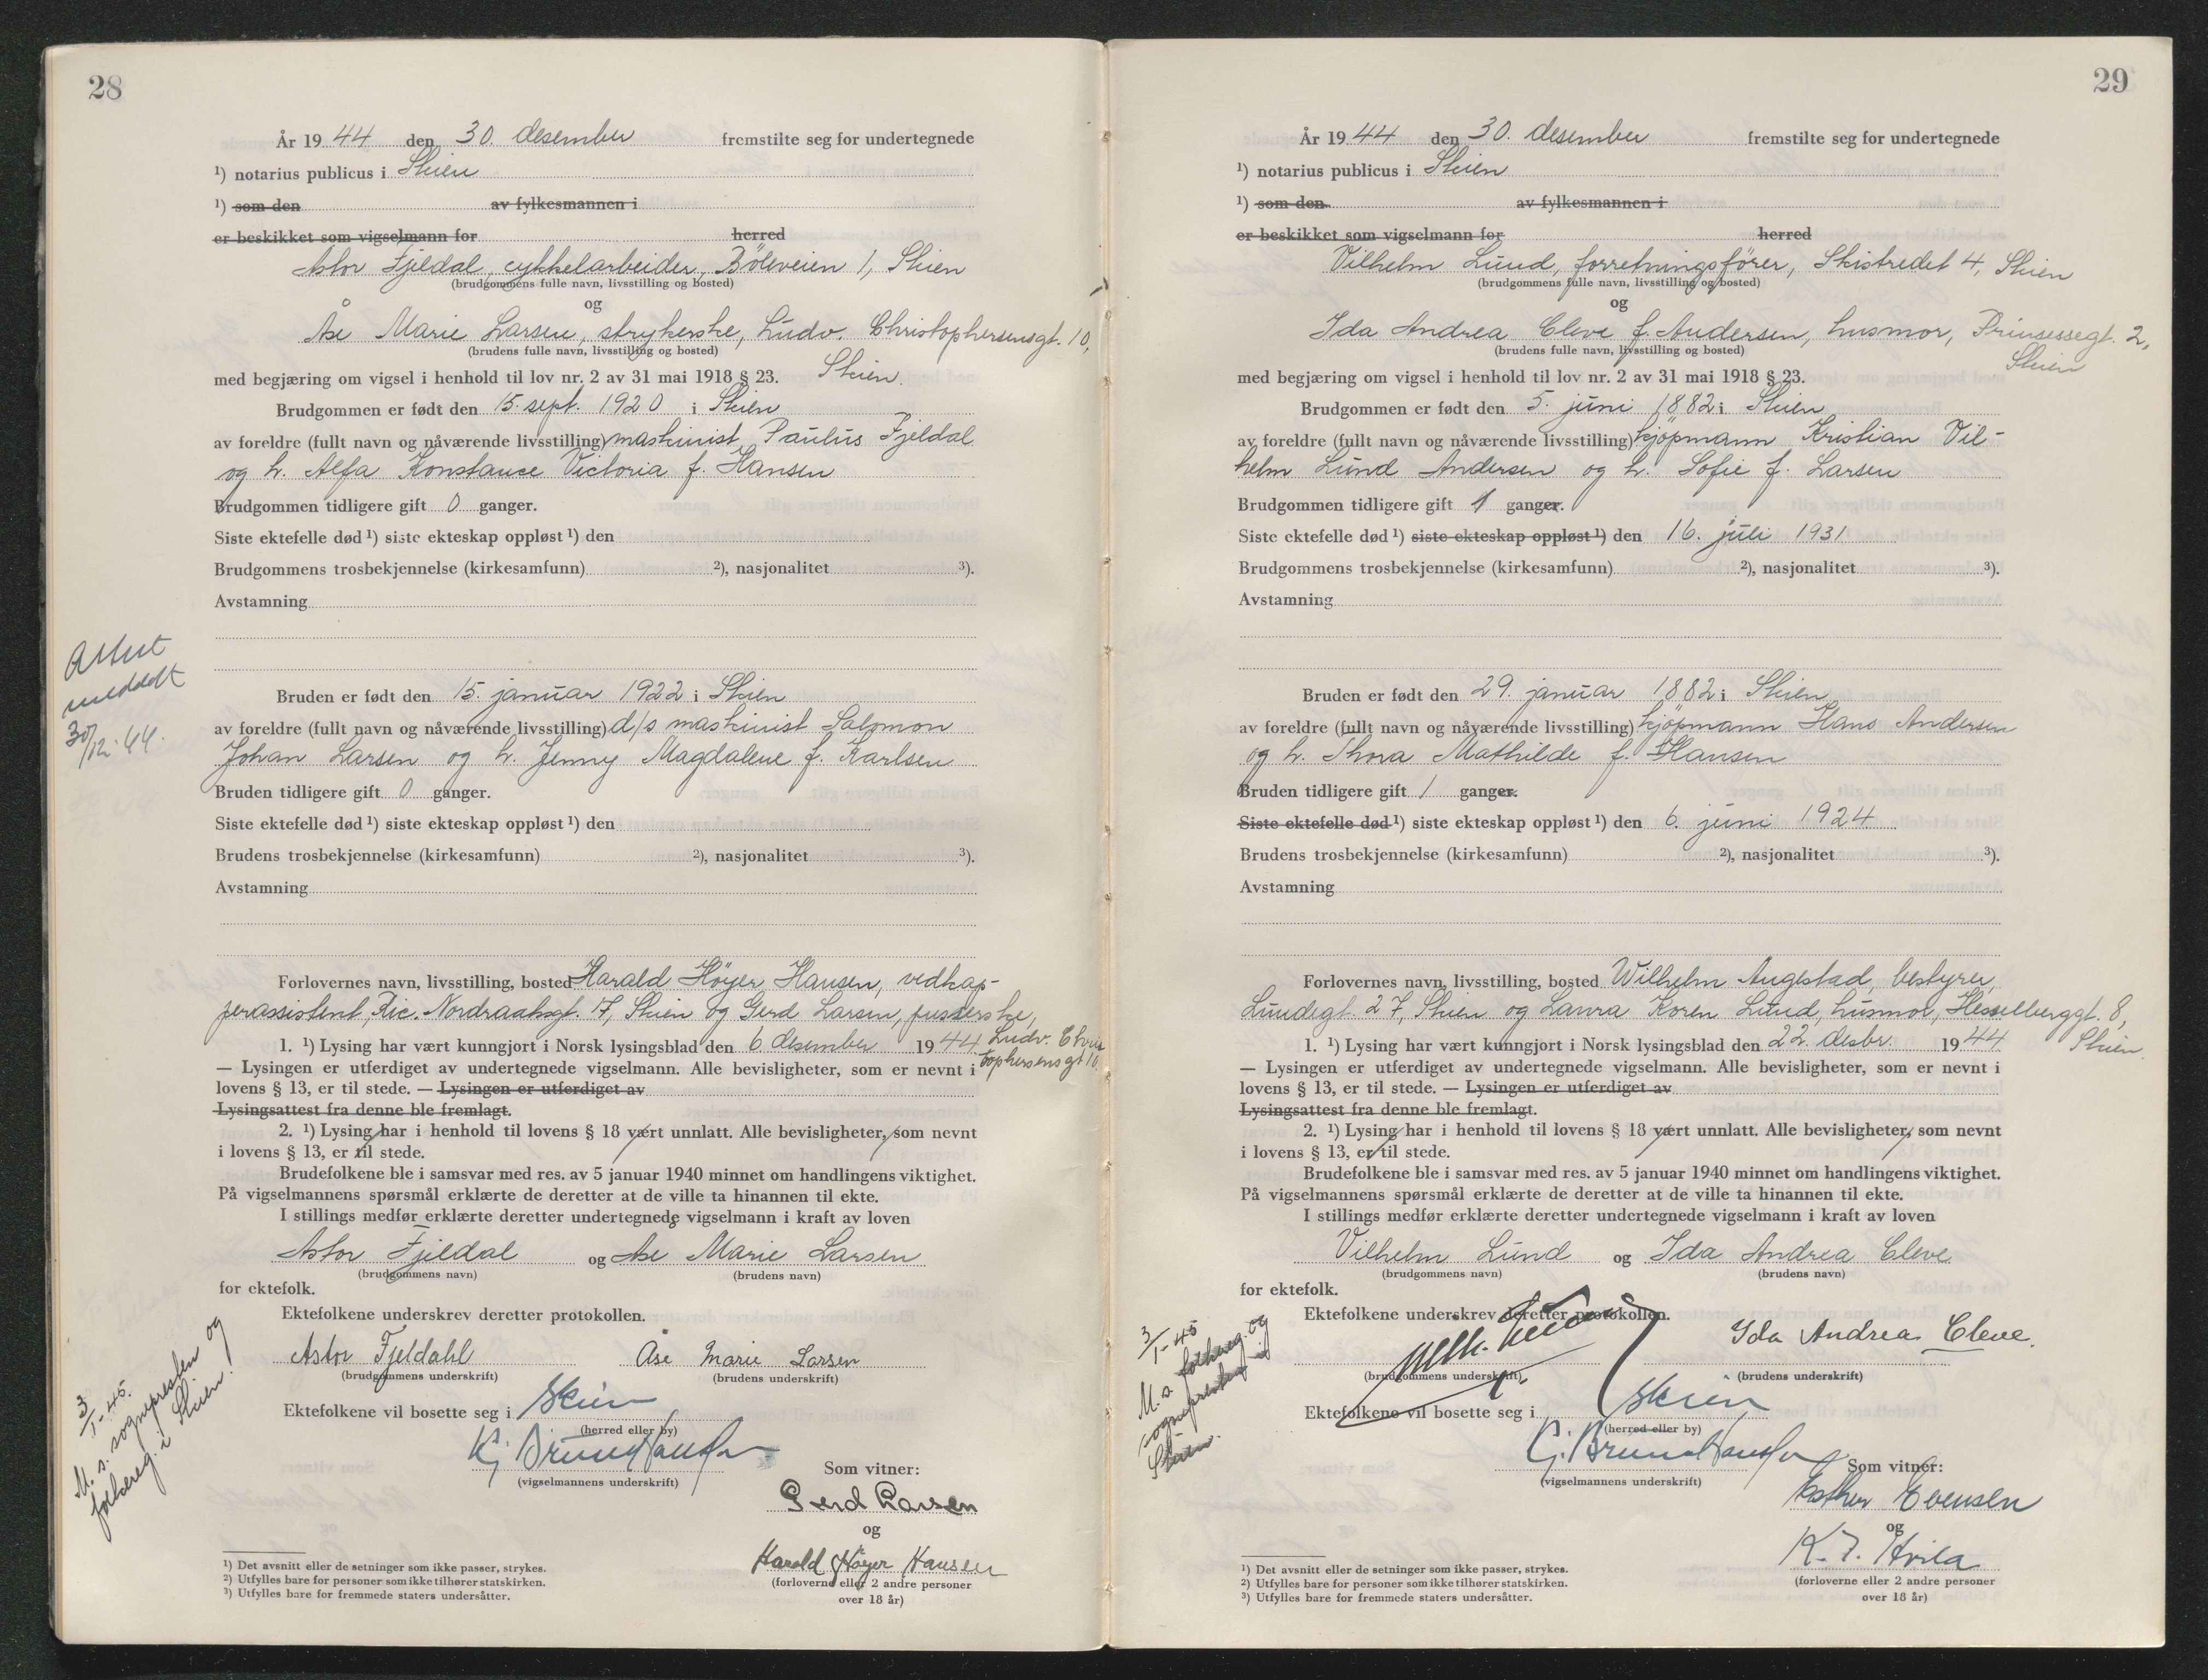 28
År 19 44 den 30. desember fremstilte seg for undertegnede
¹) notarius publicus i Skien
¹) som den av fylkesmannen i
er beskikket som vigselmann for herred
Astor Fjeldal, cykkelarbeider, Böleveien 1, Skien
(brudgommens fulle navn, livsstilling og bosted)
og
Åse Marie Larsen, strykerske, Ludv. Christophersensgt. 10,
(brudens fulle navn, livsstilling og bosted)
med begjæring om vigsel i henhold til lov nr. 2 av 31 mai 1918 § 23. Skien.
Brudgommen er født den 15. sept. 1920 i Skien
av foreldre (fullt navn og nåværende livsstilling) maskinist Paulus Fjeldal
og h. Alfa Konstance Victoria f. Hansen
Brudgommen tidligere gift 0 ganger.
Siste ektefelle død ¹) siste ekteskap oppløst ¹) den
Brudgommens trosbekjennelse (kirkesamfunn) ²), nasjonalitet ³).
Avstamning
Attest
meddelt
30/12.44.
Bruden er født den 15. januar 1922 i Skien
av foreldre (fullt navn og nåværende livsstilling) d/s maskinist Salomon
Johan Larsen og h. Jenny Magdalene f. Karlsen
Bruden tidligere gift 0 ganger.
Siste ektefelle død ¹) siste ekteskap oppløst ¹) den
Brudens trosbekjennelse (kirkesamfunn) ²), nasjonalitet ³).
Avstamning
Forlovernes navn, livsstilling, bosted Harald Höyer Hansen, vedkap-
perassistent, Ric. Nordraaksgt. 17, Skien og Gerd Larsen, pusserske,
Ludv. Chris
tophersensgt 10.
1. ¹) Lysing har vært kunngjort i Norsk lysingsblad den 6 desember 19 44
— Lysingen er utferdiget av undertegnede vigselmann. Alle bevisligheter, som er nevnt i
lovens § 13, er til stede. — Lysingen er utferdiget av
Lysingsattest fra denne ble fremlagt.
2. ¹) Lysing har i henhold til lovens § 18 vært unnlatt. Alle bevisligheter, som nevnt
i lovens § 13, er til stede.
Brudefolkene ble i samsvar med res. av 5 januar 1940 minnet om handlingens viktighet.
På vigselmannens spørsmål erklærte de deretter at de ville ta hinannen til ekte.
I stillings medfør erklærte deretter undertegnede vigselmann i kraft av loven
Astor Fjeldal og Åse Marie Larsen
(brudgommens navn) (brudens navn)
for ektefolk.
Ektefolkene underskrev deretter protokollen.
Astor Fjeldahl Åse Marie Larsen
(brudgommens underskrift) (brudens underskrift)
Ektefolkene vil bosette seg i Skien
(herred eller by)
(vigselmannens underskrift)
3/1-45.
M. s. sognepresten og
folkereg. i Skien.
Som vitner:
Gerd Larsen
og
Harald Høyer Hansen
(forloverne eller 2 andre personer
over 18 år)
¹) Det avsnitt eller de setninger som ikke passer, strykes.
²) Utfylles bare for personer som ikke tilhører statskirken.
³) Utfylles bare for fremmede staters undersåtter.
29
År 19 44 den 30. desember fremstilte seg for undertegnede
¹) notarius publicus i Skien
¹) som den av fylkesmannen i
er beskikket som vigselmann for herred
Vilhelm Lund, forretningsfører, Skistredet 4, Skien
(brudgommens fulle navn, livsstilling og bosted)
og
Ida Andrea Cleve f. Andersen, husmor, Prinsessegt. 2,
Skien
(brudens fulle navn, livsstilling og bosted)
med begjæring om vigsel i henhold til lov nr. 2 av 31 mai 1918 § 23.
Brudgommen er født den 5. juni 1882 i Skien
av foreldre (fullt navn og nåværende livsstilling) kjöpmann Kristian Vil-
helm Lund Andersen og h. Sofie f. Larsen
Brudgommen tidligere gift 1 ganger.
Siste ektefelle død ¹) siste ekteskap oppløst ¹) den 16. juli 1931
Brudgommens trosbekjennelse (kirkesamfunn) ²), nasjonalitet ³).
Avstamning
Bruden er født den 29. januar 1882 i Skien
av foreldre (fullt navn og nåværende livsstilling) kjöpmann Hans Andersen
og h. Thora Mathilde f. Hansen
Bruden tidligere gift 1 ganger.
Siste ektefelle død ¹) siste ekteskap oppløst ¹) den 6. juni 1924
Brudens trosbekjennelse (kirkesamfunn) ²), nasjonalitet ³).
Avstamning
Forlovernes navn, livsstilling, bosted Wilhelm Augestad, bestyrer,
Lundegt. 27, Skien og Laura Koren Lund, husmor, Hesselberggt. 8,
Skien.
1. ¹) Lysing har vært kunngjort i Norsk lysingsblad den 22. desbr. 19 44
— Lysingen er utferdiget av undertegnede vigselmann. Alle bevisligheter, som er nevnt i
lovens § 13, er til stede. — Lysingen er utferdiget av
Lysingsattest fra denne ble fremlagt.
2. ¹) Lysing har i henhold til lovens § 18 vært unnlatt. Alle bevisligheter, som nevnt
i lovens § 13, er til stede.
Brudefolkene ble i samsvar med res. av 5 januar 1940 minnet om handlingens viktighet.
På vigselmannens spørsmål erklærte de deretter at de ville ta hinannen til ekte.
I stillings medfør erklærte deretter undertegnede vigselmann i kraft av loven
Vilhelm Lund og Ida Andrea Cleve
(brudgommens navn) (brudens navn)
for ektefolk.
Ektefolkene underskrev deretter protokollen.
Vilh. Lund Ida Andrea Cleve.
(brudgommens underskrift) (brudens underskrift)
Ektefolkene vil bosette seg i Skien
(herred eller by)
(vigselmannens underskrift)
3/1-45
M. s. folkereg. og
sognepresten i
Skien.
Som vitner:
Esther Evensen
og
K. J. Hvila
(forloverne eller 2 andre personer
over 18 år)
¹) Det avsnitt eller de setninger som ikke passer, strykes.
²) Utfylles bare for personer som ikke tilhører statskirken.
³) Utfylles bare for fremmede staters undersåtter.